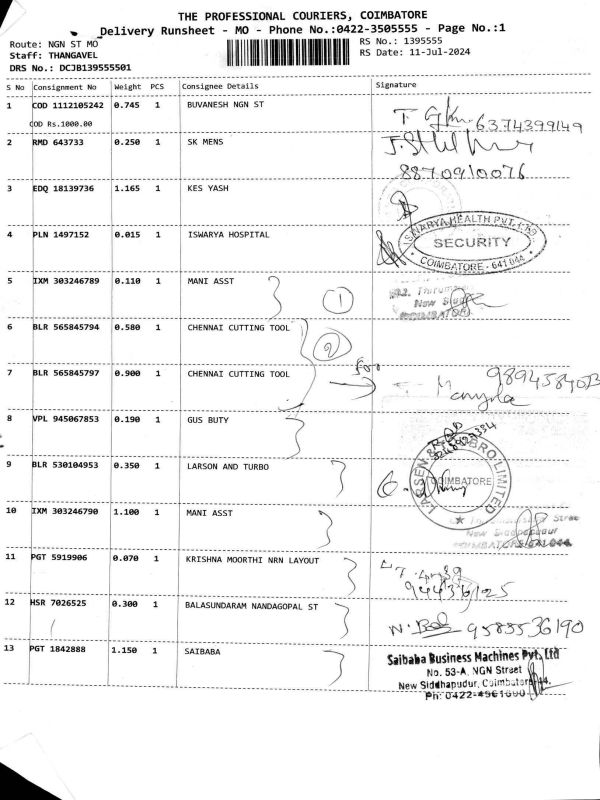 THE PROFESSIONAL COURIERS, COIMBATORE
Delivery Runsheet - MO - Phone No.:0422-3505555 - Page No.:1
Route: NGN ST MO
RS No.: 1395555
Staff: THANGAVEL
RS Date: 11-Jul-2024
DRS No.: DCJB139555501
S No Consignment No Weight PCS Consignee Details Signature
1 COD 1112105242 0.745 1 BUVANESH NGN ST
COD Rs.1000.00
6374399149
2 RMD 643733 0.250 1 SK MENS
8870910076
3 EDQ 18139736 1.165 1 KES YASH
4 PLN 1497152 0.015 1 ISWARYA HOSPITAL
ISWARYA HEALTH PVT. LTD.
SECURITY
COIMBATORE - 641 044
5 IXM 303246789 0.110 1 MANI ASST
1
New
COIMBATOR
6 BLR 565845794 0.580 1 CHENNAI CUTTING TOOL
2
7 BLR 565845797 0.900 1 CHENNAI CUTTING TOOL
for
8 VPL 945067853 0.190 1 GUS BUTY
9 BLR 530104953 0.350 1 LARSON AND TURBO
LARSEN & TOUBRO LIMITED
COIMBATORE
10 IXM 303246790 1.100 1 MANI ASST
New Siddhapudur
COIMBATORE-641 044
11 PGT 5919906 0.070 1 KRISHNA MOORTHI NRN LAYOUT
12 HSR 7026525 0.300 1 BALASUNDARAM NANDAGOPAL ST
9585536190
13 PGT 1842888 1.150 1 SAIBABA
Saibaba Business Machines Pvt. Ltd
No. 53-A, NGN Street
New Siddhapudur, Coimbatore-44.
Ph: 0422-4961600